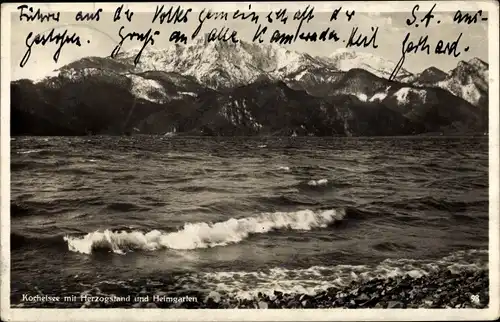 Führer aus der Volksgemeinschaft der S.A. aus-
gestoßen. Gruß an alle Kameraden. Heil Gerhard.
Kochelsee mit Herzogstand und Heimgarten